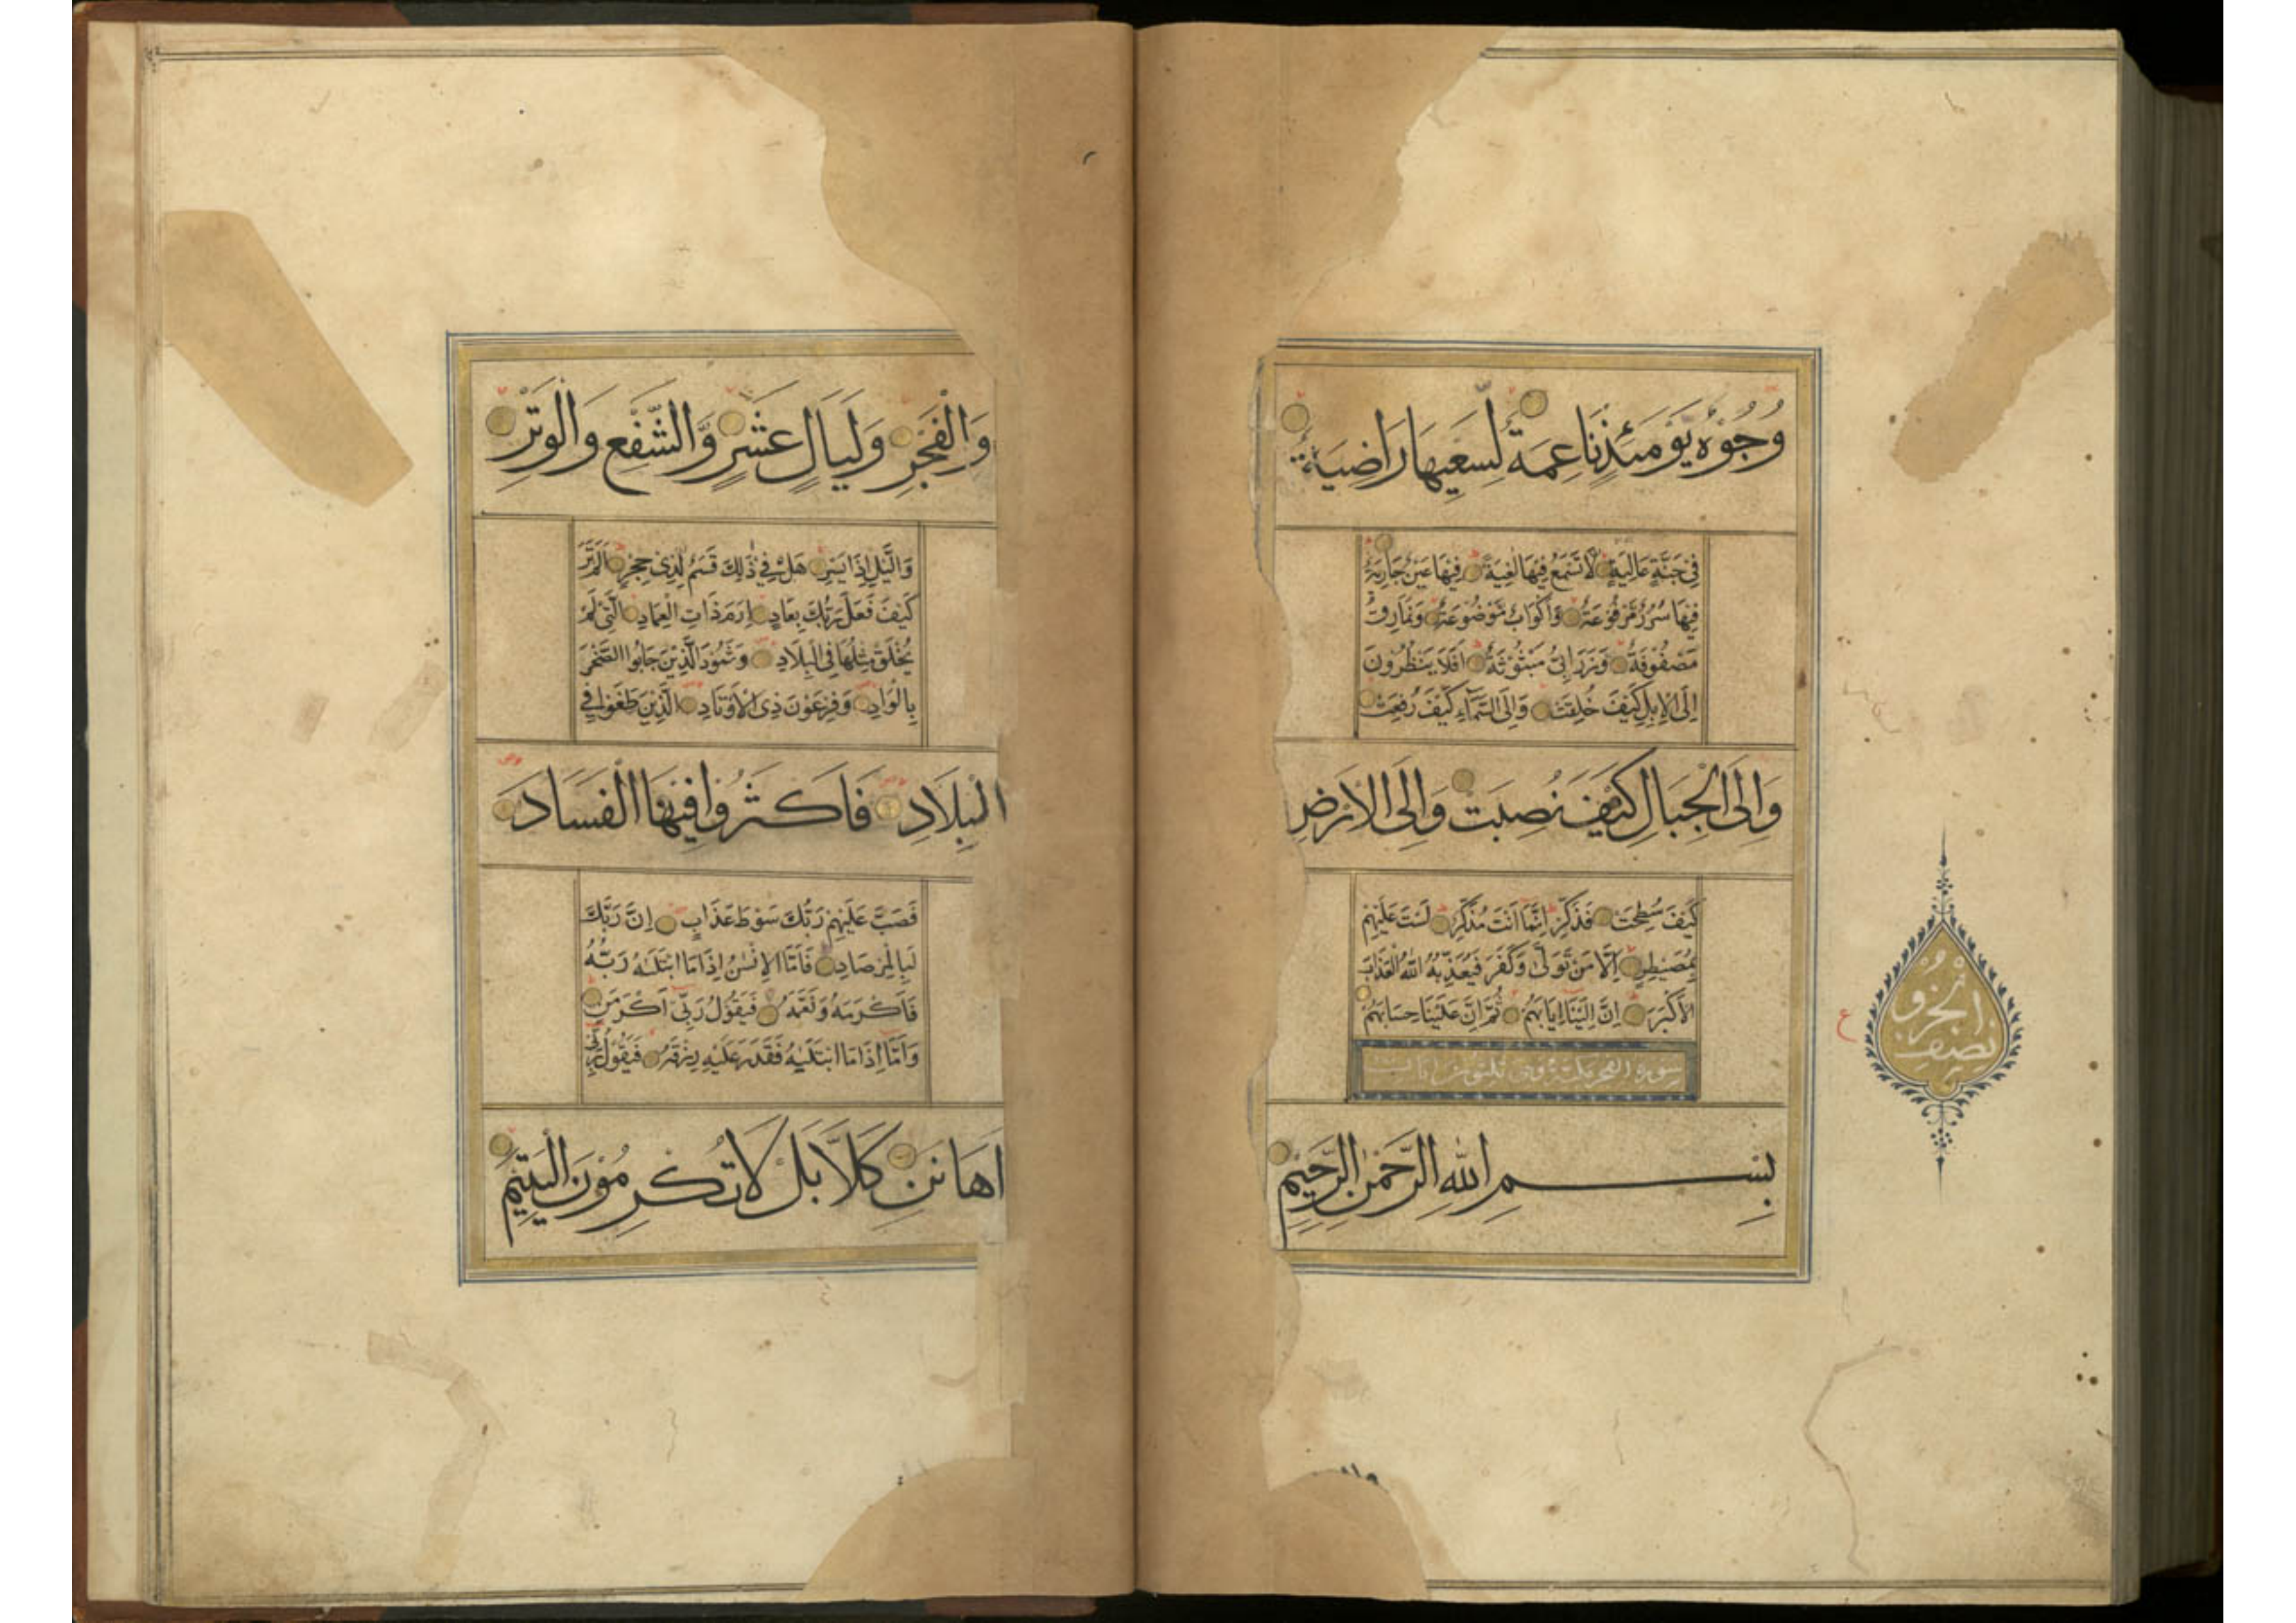 وُجُوْهٌ يَّوْمَئِذٍ نَاعِمَةٌ لِّسَعْيِهَا رَاضِيَةٌ
فِيْ جَنَّةٍ عَالِيَةٍ لَّا تَسْمَعُ فِيْهَا لَٰغِيَةً فِيْهَا عَيْنٌ جَارِيَةٌ
فِيْهَا سُرُرٌ مَّرْفُوْعَةٌ وَّاَكْوَابٌ مَّوْضُوْعَةٌ وَنَمَارِقُ
مَصْفُوْفَةٌ وَّزَرَابِيُّ مَبْثُوْثَةٌ اَفَلَا يَنْظُرُوْنَ
اِلَى الْاِبِلِ كَيْفَ خُلِقَتْ وَاِلَى السَّمَآءِ كَيْفَ رُفِعَتْ
وَاِلَى الْجِبَالِ كَيْفَ نُصِبَتْ وَاِلَى الْاَرْضِ
كَيْفَ سُطِحَتْ فَذَكِّرْ اِنَّمَا اَنْتَ مُذَكِّرٌ لَسْتَ عَلَيْهِمْ
بِمُصَيْطِرٍ اِلَّا مَنْ تَوَلّٰى وَكَفَرَ فَيُعَذِّبُهُ اللّٰهُ الْعَذَابَ
الْاَكْبَرَ اِنَّ اِلَيْنَا اِيَابَهُمْ ثُمَّ اِنَّ عَلَيْنَا حِسَابَهُمْ
سورة الفجر مكية وهي ثلثون
بِسْمِ اللّٰهِ الرَّحْمٰنِ الرَّحِيْمِ
نصف
الجزو
ع
وَالْفَجْرِ وَلَيَالٍ عَشْرٍ وَّالشَّفْعِ وَالْوَتْرِ
وَالَّيْلِ اِذَا يَسْرِ هَلْ فِيْ ذٰلِكَ قَسَمٌ لِّذِيْ حِجْرٍ اَلَمْ تَرَ
كَيْفَ فَعَلَ رَبُّكَ بِعَادٍ اِرَمَ ذَاتِ الْعِمَادِ الَّتِيْ لَمْ
يُخْلَقْ مِثْلُهَا فِي الْبِلَادِ وَثَمُوْدَ الَّذِيْنَ جَابُوا الصَّخْرَ
بِالْوَادِ وَفِرْعَوْنَ ذِي الْاَوْتَادِ الَّذِيْنَ طَغَوْا فِي
الْبِلَادِ فَاَكْثَرُوْا فِيْهَا الْفَسَادَ
فَصَبَّ عَلَيْهِمْ رَبُّكَ سَوْطَ عَذَابٍ اِنَّ رَبَّكَ
لَبِالْمِرْصَادِ فَاَمَّا الْاِنْسٰنُ اِذَا مَا ابْتَلٰىهُ رَبُّهُ
فَاَكْرَمَهُ وَنَعَّمَهُ فَيَقُوْلُ رَبِّيْ اَكْرَمَنِ
وَاَمَّا اِذَا مَا ابْتَلٰىهُ فَقَدَرَ عَلَيْهِ رِزْقَهُ فَيَقُوْلُ رَبِّيْ
اَهَانَنِ كَلَّا بَلْ لَا تُكْرِمُوْنَ الْيَتِيْمَ